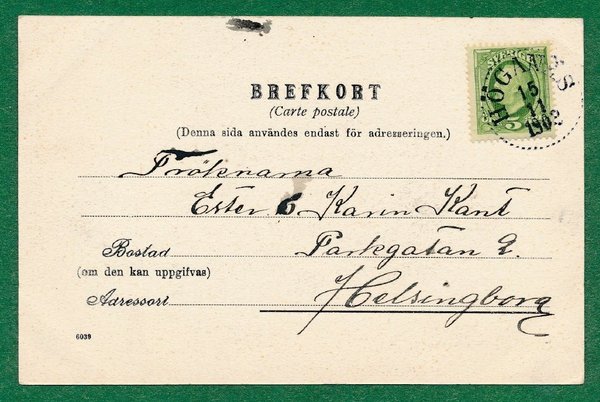 BREFKORT
(Carte postale)
(Denna sida användes endast för adresseringen.)
SVERIGE
5
HÖGANÄS
15
11
1902
Fröknarna
Ester & Karin Kant
Bostad Parkgatan 2.
(om den kan uppgifvas)
Adressort Helsingborg
6039